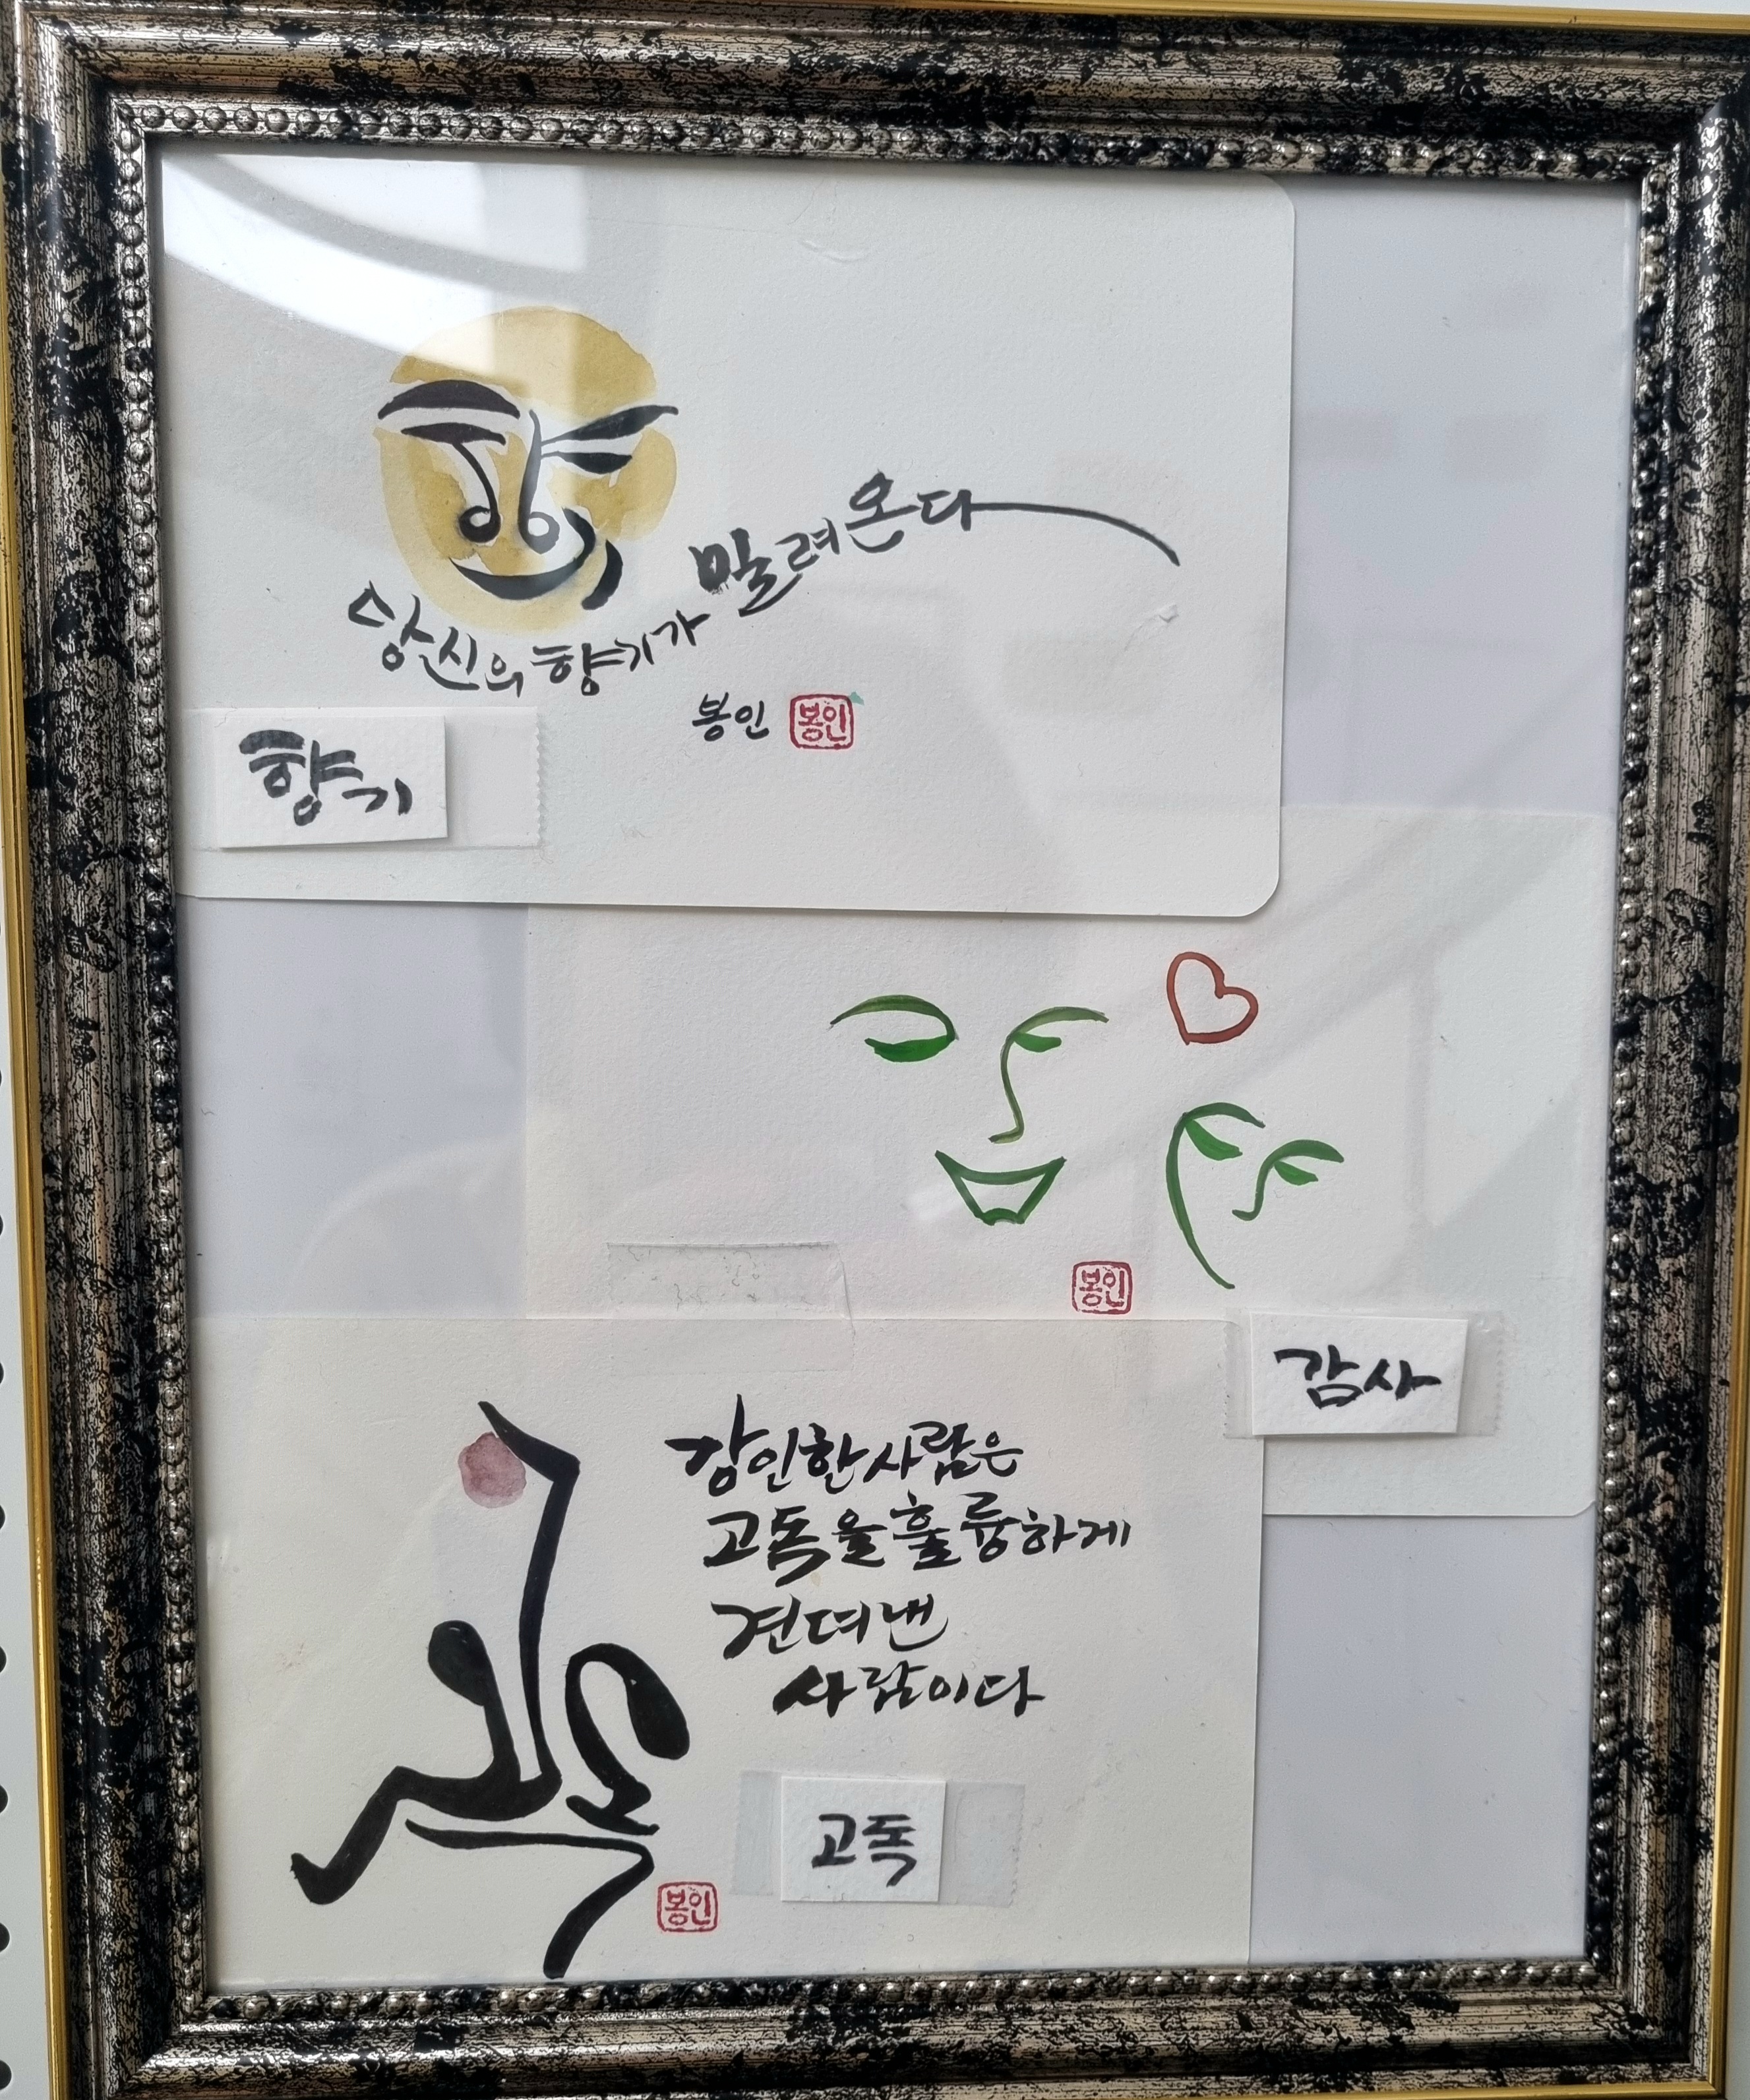 당신의 향기가 밀려온다
봉인 봉인
향기
봉인
감사
강인한 사람은
고독을 훌륭하게
견뎌낸
사람이다
고독
봉인